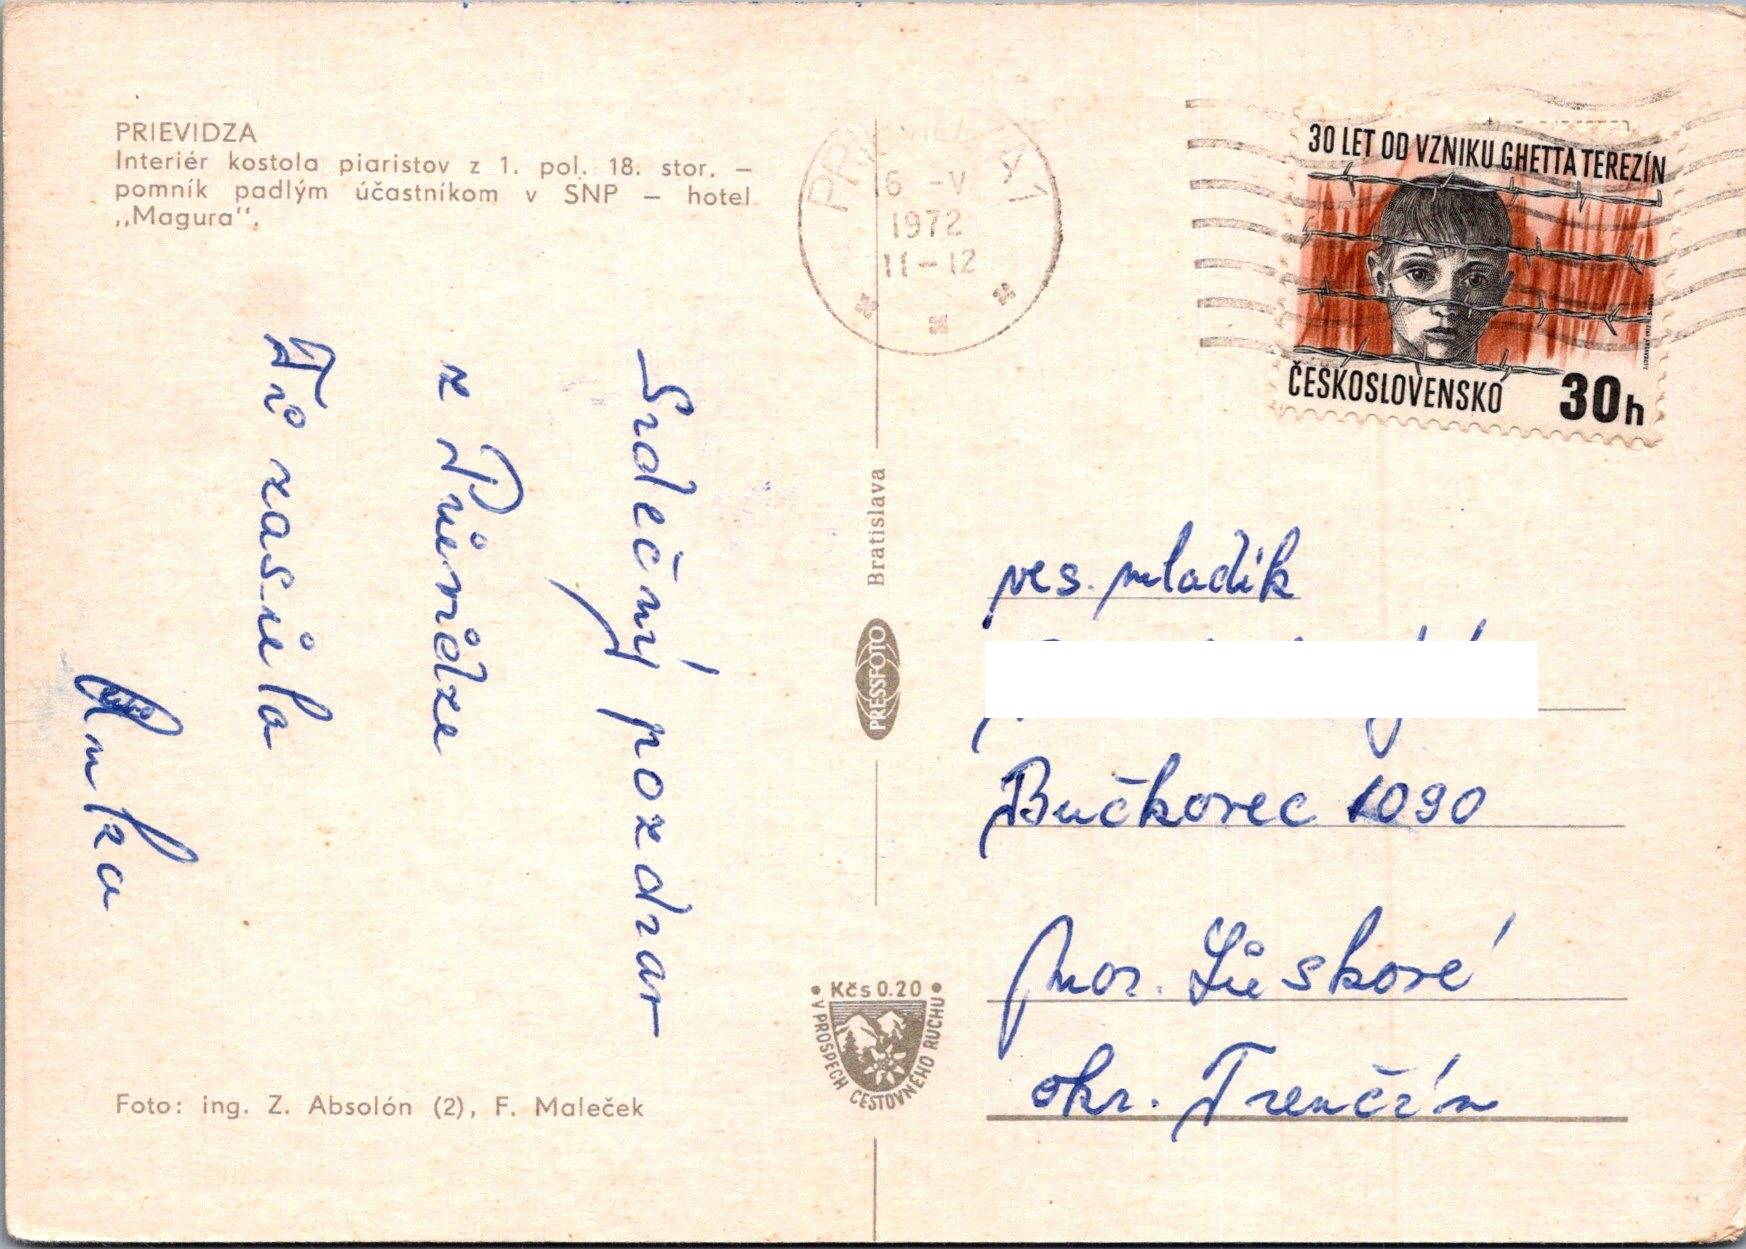 PRIEVIDZA
Interiér kostola piaristov z 1. pol. 18. stor. –
pomník padlým účastníkom v SNP – hotel
„Magura“.
6 -V
1972
11-12
30 LET OD VZNIKU GHETTA TEREZÍN
ČESKOSLOVENSKO 30h
Srdečný pozdrav
z Prievidze
Ti zasiela
Anka
Bratislava
PRESSFOTO
Kčs 0.20
V PROSPECH CESTOVNÉHO RUCHU
ves. mladík
Bučkovec 1090
Mor. Lieskové
okr. Trenčín
Foto: ing. Z. Absolón (2), F. Maleček